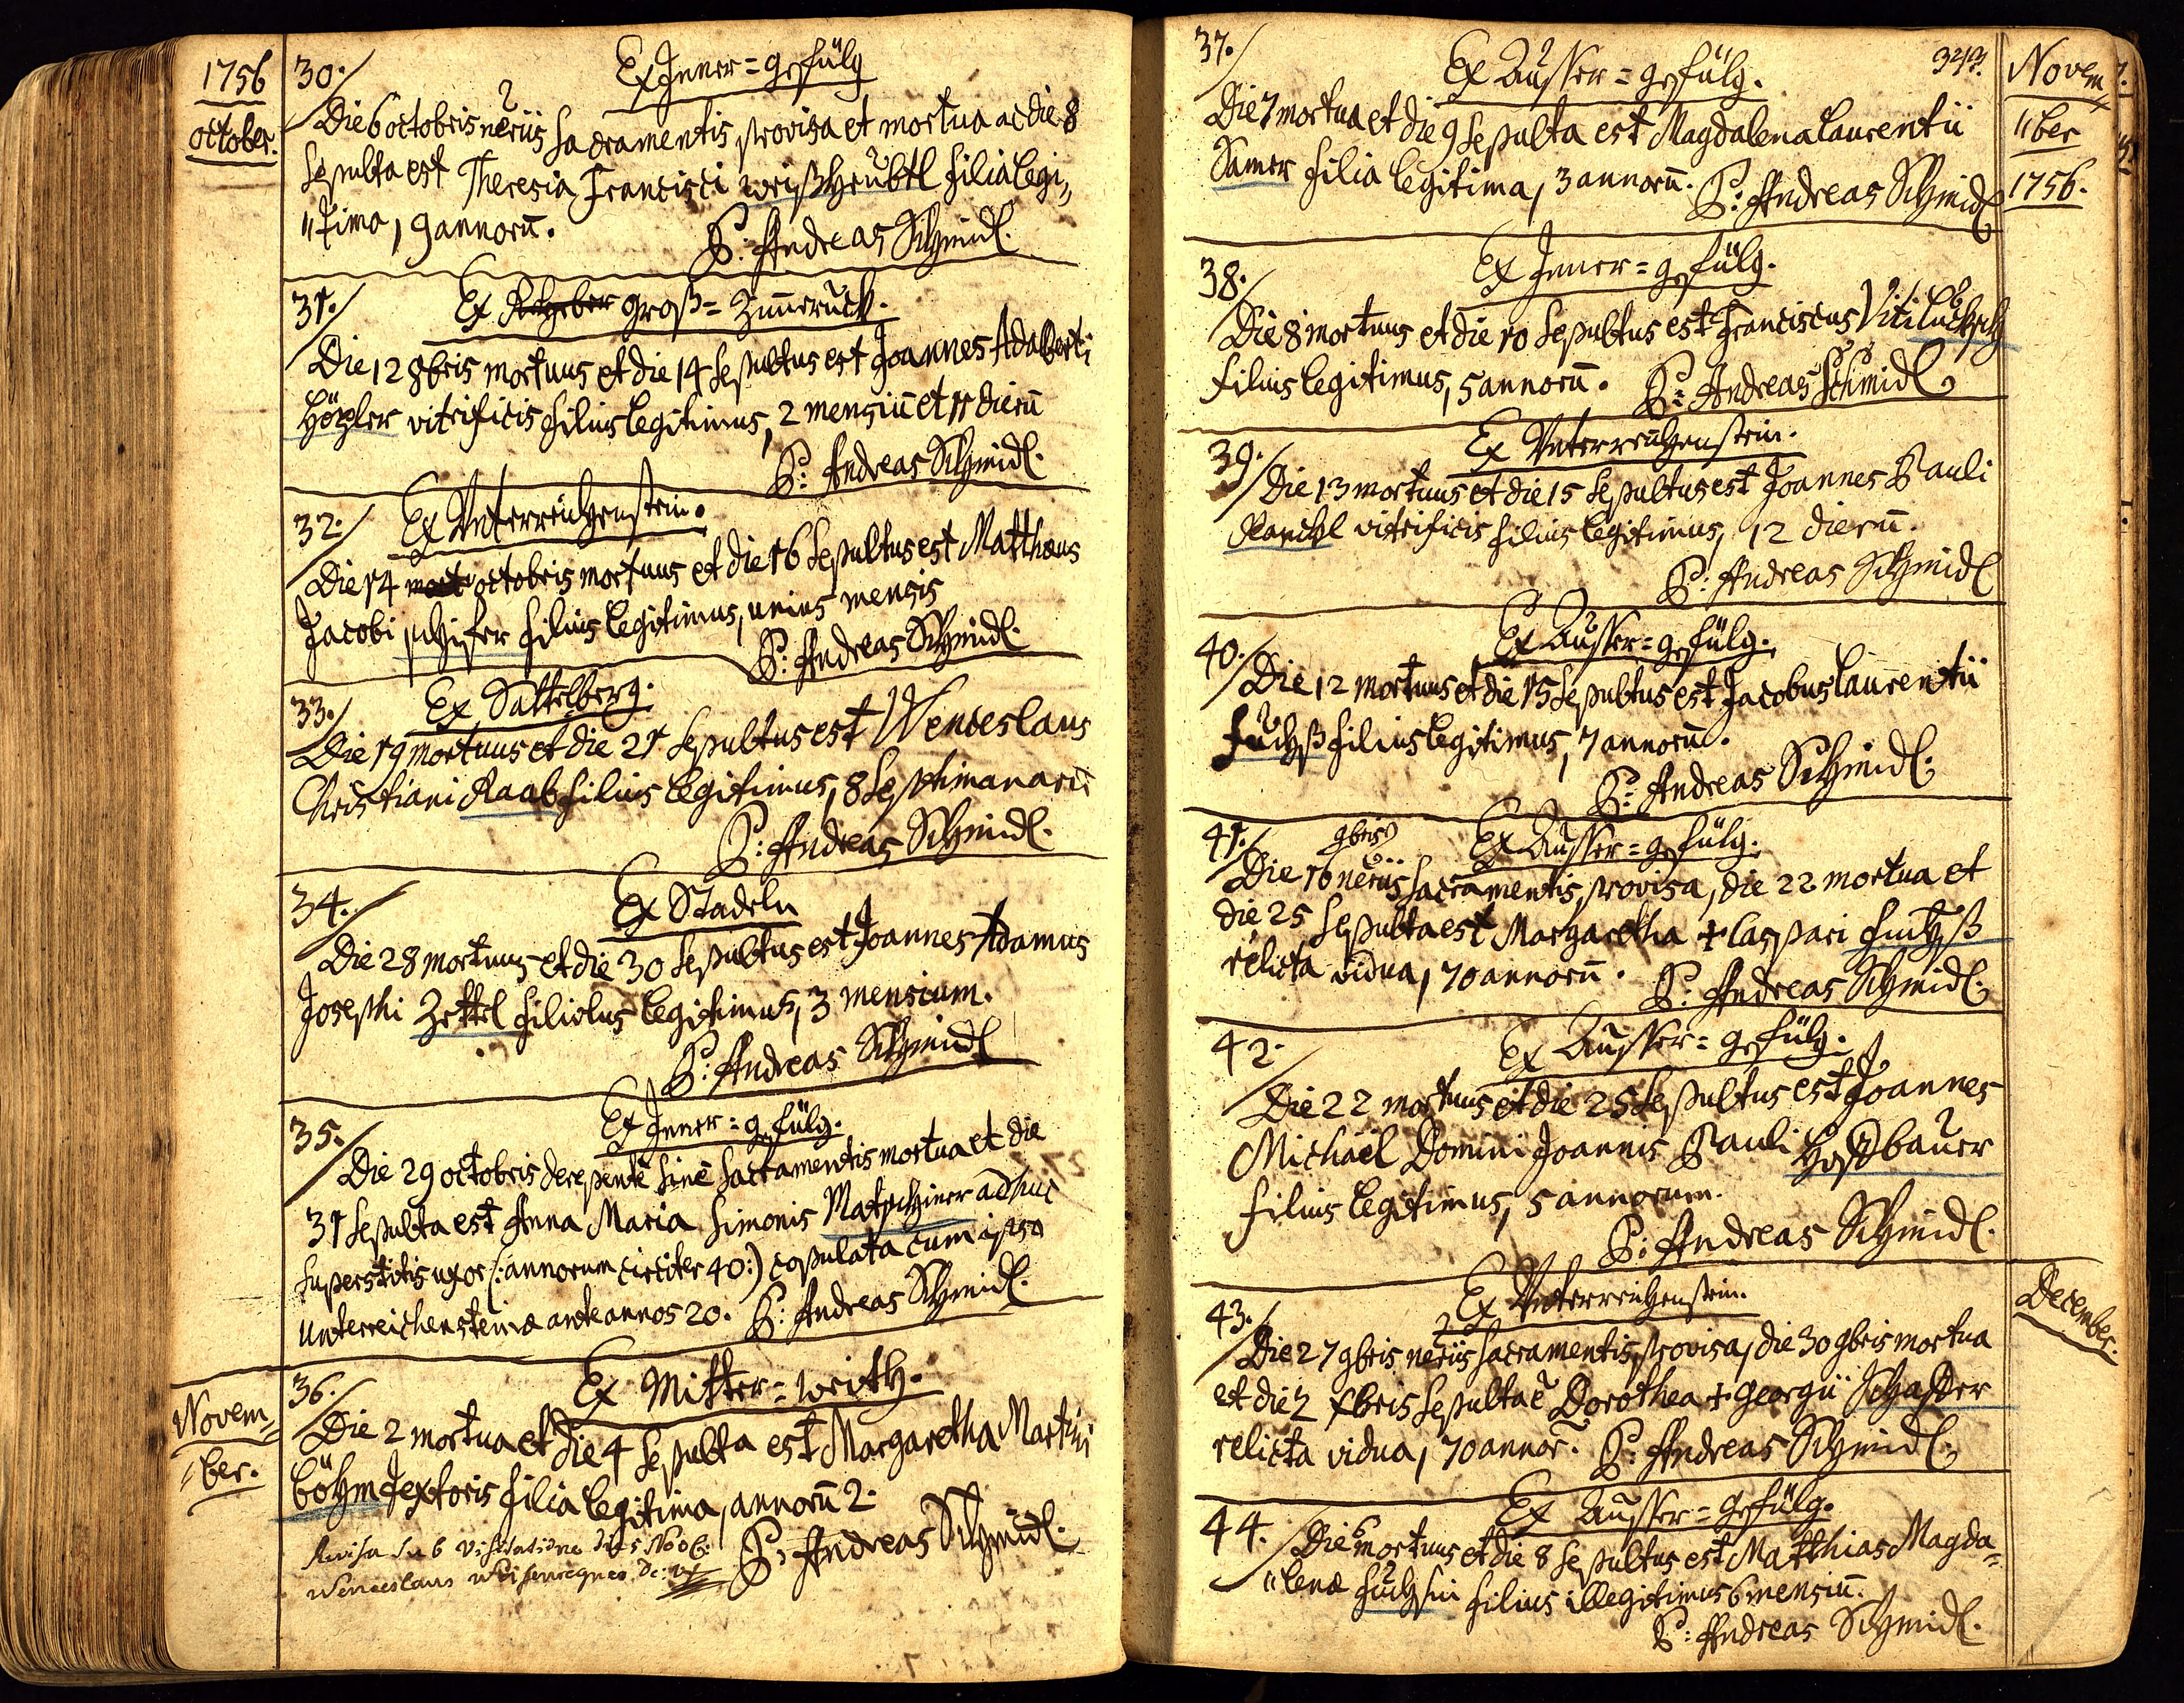 1756
October.
30. Ex Inner=gefülg
Die 6 octobris neriis sacramentis provisa et mortua ac die 8
sepulta est Theresia Francisci Weißheübtl filia legi„
„tima, 9 annorū.
P: Andreas Schmidl.
31. Ex groß=Zimeruck.
Die 12 8bris mortuus et die 14 sepultus est Joannes Adalberti
Hötzler vitrificis filius legitimus, 2 mensiū et 11 dierū
P: Andreas Schmidl.
32. Ex Unterreichenstein.
Die 14 octobris mortuus et die 16 sepultus est Matthæus
Jacobi schifer filius legitimus, unius mensis
P: Andreas Schmidl.
33. Ex Sattelberg.
Die 19 mortuus et die 21 sepultus est Wenceslaus
Christiani Raab filius legitimus, 8 septimanarū
P: Andreas Schmidl.
34. Ex Stadeln
Die 28 mortuus et die 30 sepultus est Joannes Adamus
Josephi Zettel filiolus legitimus, 3 mensium.
P: Andreas Schmidl
35. Ex Inner=gefülg.
Die 29 octobris derepente sine sacramentis mortua et die
31 sepulta est Anna Maria Simonis Matschiner adhuc
superstitis uxor (: annorum circiter 40:) copulata cum ipso
Unterreichensteinæ ante annos 20. P: Andreas Schmidl.
Novem=
„ber.
36. Ex Mitter=weith.
Die 2 mortua et die 4 sepulta est Margaretha Martini
böhm textoris filia legitima, annorū 2.
P: Andreas Schmidl.
sub visitatione die 5 Novb:
Wenceslaus
Novem=
„ber
1756.
37. Ex Ausser=gefülg.
Die 7 mortua et die 9 sepulta est Magdalena Laurentii
Samer filia legitima, 3 annorū. P: Andreas Schmidl
38. Ex Inner=gefülg.
Die 8 mortuus et die 10 sepultus est Franciscus Viti Lucksch
filius legitimus, 5 annorū. P: Andreas Schmidl
39. Ex Unterreichenstein.
Die 13 mortuus et die 15 sepultus est Joannes Pauli
vitrificis filius legitimus, 12 dierū.
P: Andreas Schmidl
40. Ex Ausser=gefülg.
Die 12 mortuus et die 15 sepultus est Jacobus Laurentii
fuchß filius legitimus, 7 annorū.
P: Andreas Schmidl.
41. Ex Ausser=gefülg.
Die 16 9bris neriis sacramentis provisa, die 22 mortua et
die 25 sepulta est Margaretha + Caspari fuchß
relicta vidua, 70 annorū. P: Andreas Schmidl.
42. Ex Ausser=gefülg.
Die 22 mortuus et die 25 sepultus est Joannes
Michaël Domini Joannis Pauli Hoffbauer
filius legitimus, 5 annorum.
P: Andreas Schmidl.
December.
43. Ex Unterreichenstein.
Die 27 9bris neriis sacramentis provisa, die 30 9bris mortua
et die 2 Xbris sepulta ē Dorothea + Georgii Schaffer
relicta vidua, 70 annor. P: Andreas Schmidl.
44. Ex Ausser=gefülg.
Die 6 mortuus et die 8 sepultus est Matthias Magda=
„lenæ fuchsin filius illegitimus 6 mensiū.
P: Andreas Schmidl.